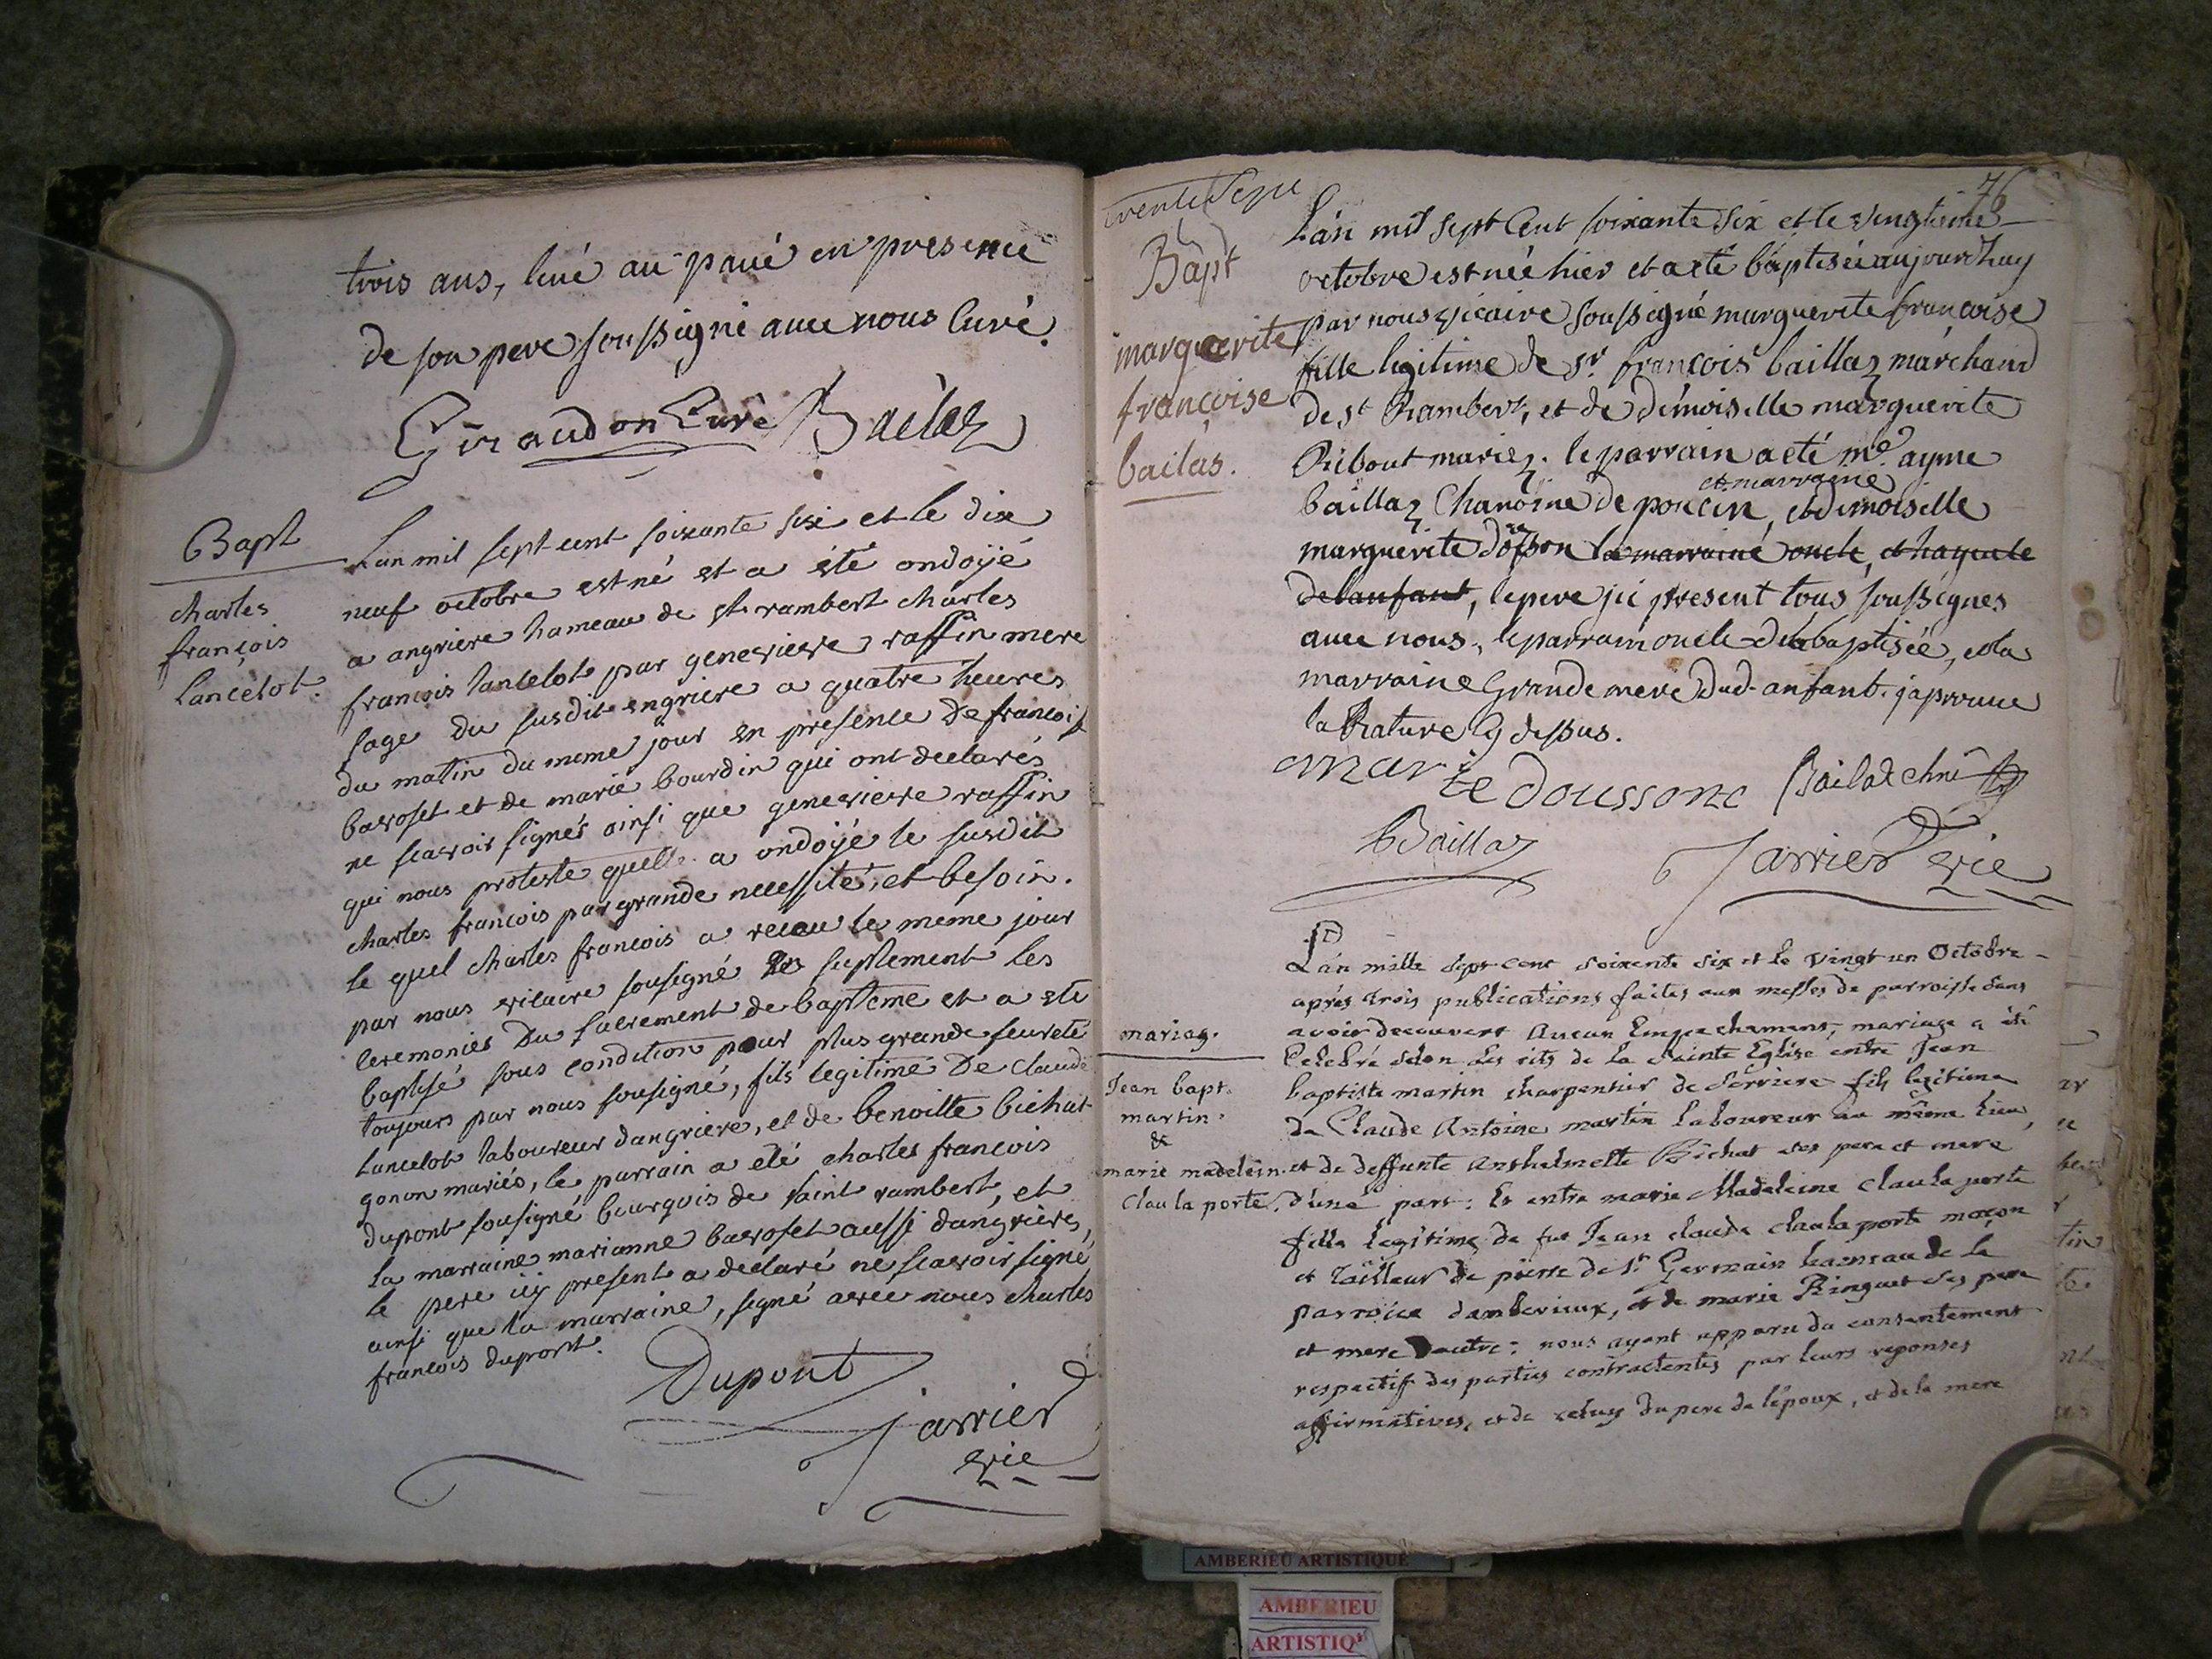 trois ans, levé au pavé en presence
de son pere soussigné avec nous Curé.
Giraudon Curé Bailaz
Bapt
charles
françois
lancelot.
Lan mil sept cent soixante six et le dix
neuf octobre est né et a été ondoÿé
a angriere hameau de st rambert charles
francois lancelot par genevieve raffin mere
sage du susdit engriere a quatre heures
du matin du meme jour en presence de francois
bavoset et de marie bourdin qui ont declarés
ne scavoir signés ainsi que genevieve raffin
qui nous proteste quelle a ondoÿé le susdit
charles francois par grande necessité, et besoin.
le quel charles francois a recu le meme jour
par nous vicaire sousigné les suplement les
ceremonies du sacrement de bapteme et a ete
baptisé sous condition pour plus grande seureté
toujours par nous sousigné, fils legitime de claude
lancelot laboureur dangriere, et de benoitte bichat
gonon mariés, le parrain a eté charles francois
dupont sousigné bourgois de saint rambert, et
la marraine marianne bavoset aussi dangriere,
le pere icy present a declaré ne scavoir signé
ainsi que la marraine, signé avec nous charles
francois dupont.
Dupont
Jarrier
vic
trente sept
76
Bapt
marguerite
françoise
bailas.
L'an mil sept Cent soixante six et le vingtieme
octobre est née hier et a eté baptisée aujourdhuy
par nous vicaire soussigné marguerite francoise
fille legitime de sr. françois baillaz marchand
de st Rambert, et de demoiselle marguerite
Ribout mariez. le parrain a eté me. ayme
et marraine
baillaz Chanoine de poncin, et demoiselle
marguerite dosson la marraine oncle, et hayeule
de lanfant, le pere ici present tous soussignes
avec nous, le parrain oncle de la baptisée, et la
marraine Grande mere dud. anfant. japrouve
la Rature cy dessus.
marite doussone Bailaz chne
Baillaz
Jarrier vic
L'an mille sept cent soixente six et le vingt un Octobre
aprés trois publications faites aux messes de parroisse sans
avoir decouvert aucun Empechement, mariage a été
Celebré selon les rits de la sainte Eglise entre Jean
baptiste martin charpentier de serriere fils legitime
de Claude Antoine martin laboureur au même lieu,
et de deffunte Anthelmette Bichat ses pere et mere
d'une part: Et entre marie Madeleine Claulaporte
fille legitime de fut Jean claude claulaporte maçon
et tailleur de pierre de st. Germain hameau de la
parroice damberieux, et de marie Ringuet ses pere
et mere d'autre: nous ayant apparu du consentement
respectif des parties contractentes par leurs reponses
affirmatives, et de celuy du pere de l'époux, et de la mere
mariag.
Jean bapt.
martin.
&
marie madelein
Clau la porte.
AMBERIEU ARTISTIQUE
AMBERIEU
ARTISTIQ